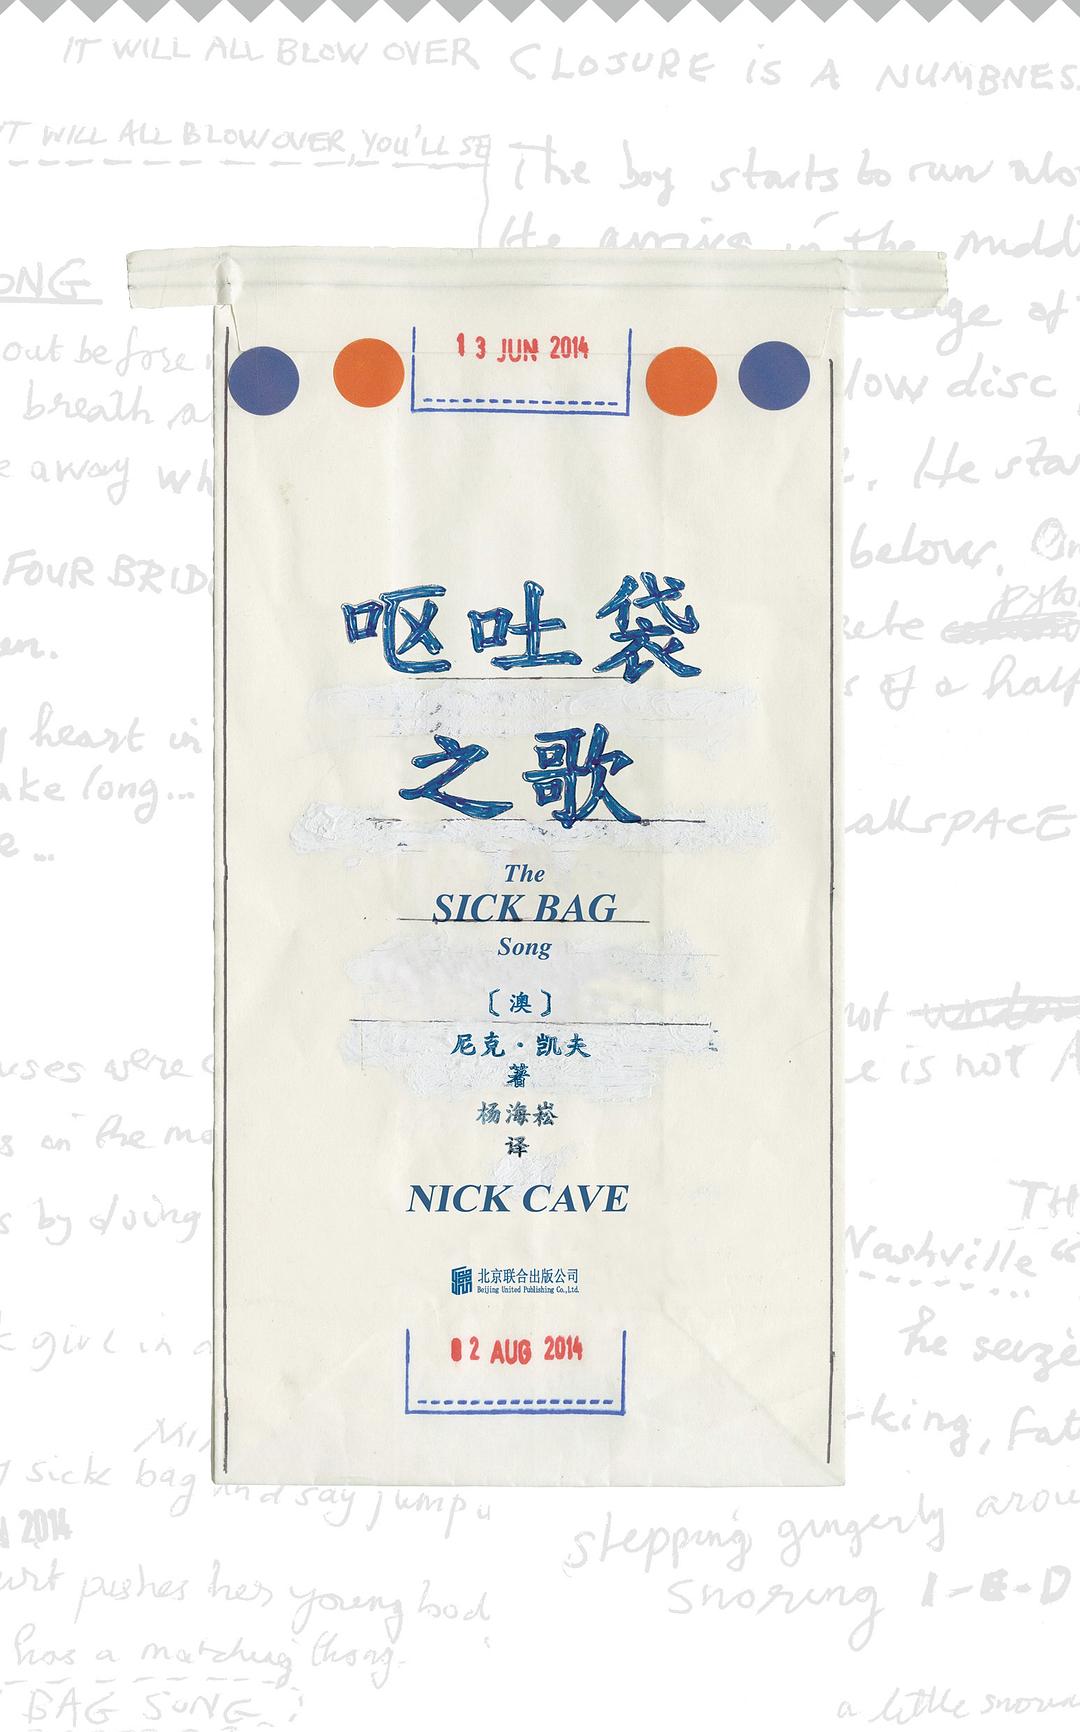 IT WILL ALL BLOW OVER
CLOSURE IS A NUMBNES
IT WILL ALL BLOW OVER, YOU'LL SE
The boy starts to run alo
He arrives in the middl
ONG
out before
low disc
breath a
e away wh
. He star
FOUR BRID
below. On
en.
rete
s of a half
y heart in
ake long...
e ...
SPACE
not
uses were
e is not A
s on the mo
s by doing
TH
Nashville
k girl in a
he seize
-king, Fat
sick bag and say jump
stepping gingerly arou
N 2014
Snoring I-E-D
urt pushes her young bod
has a matching thong.
BAG SONG
a little snorin
13 JUN 2014
呕吐袋
之歌
The
SICK BAG
Song
〔澳〕
尼克·凯夫
著
杨海崧
译
NICK CAVE
北京联合出版公司
Beijing United Publishing Co.,Ltd.
02 AUG 2014